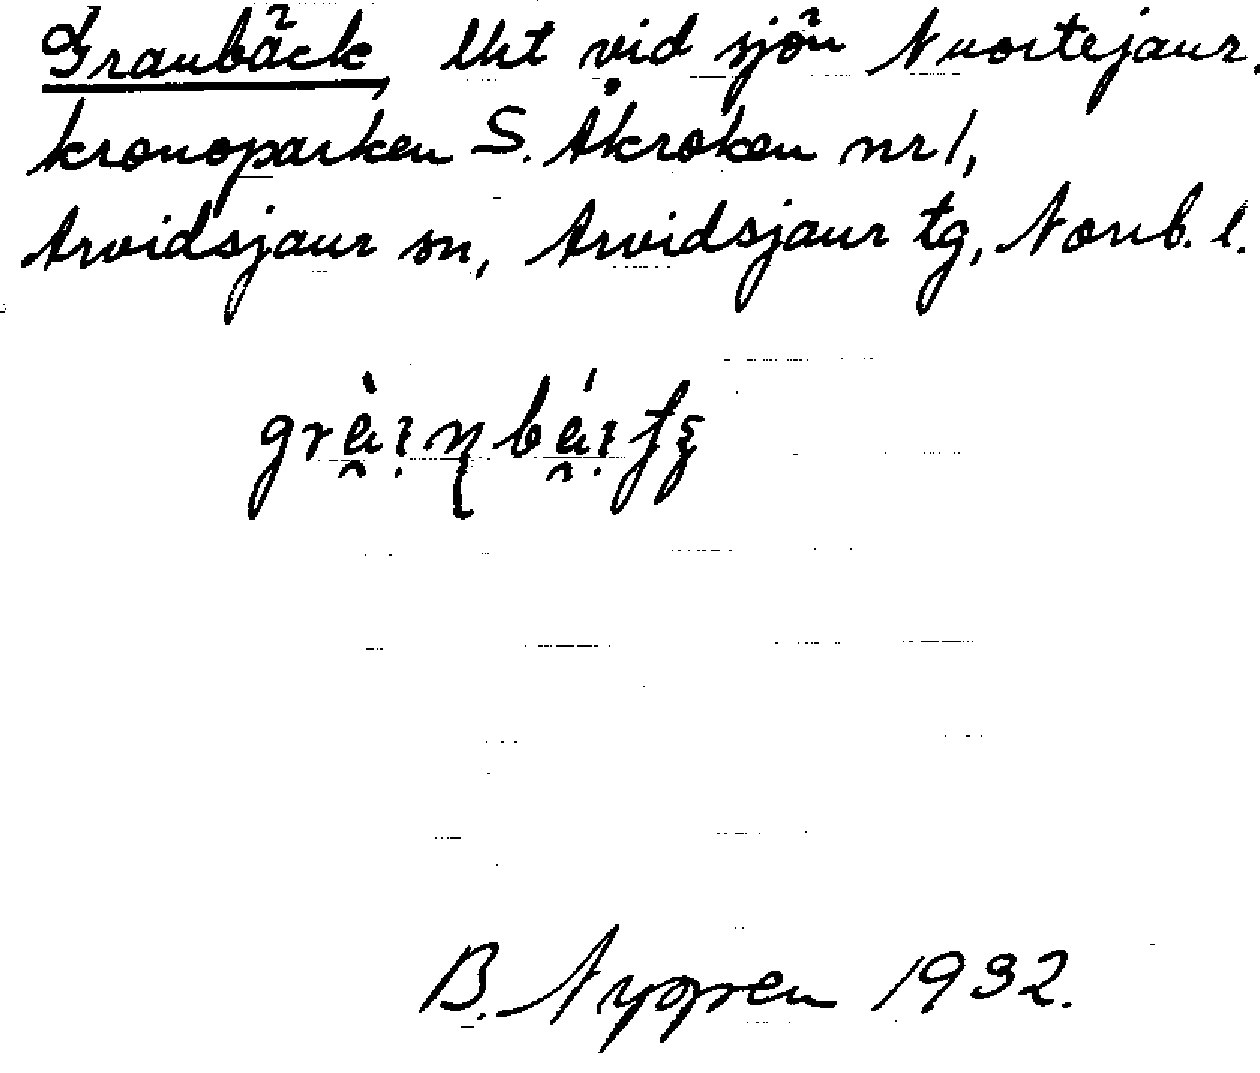 Granbäck, lht vid sjön Nuortejaur,
kronoparken S. Åkroken nr 1,
Arvidsjaur sn, Arvidsjaur tg, Norrb. l.
B. Nygren 1932.